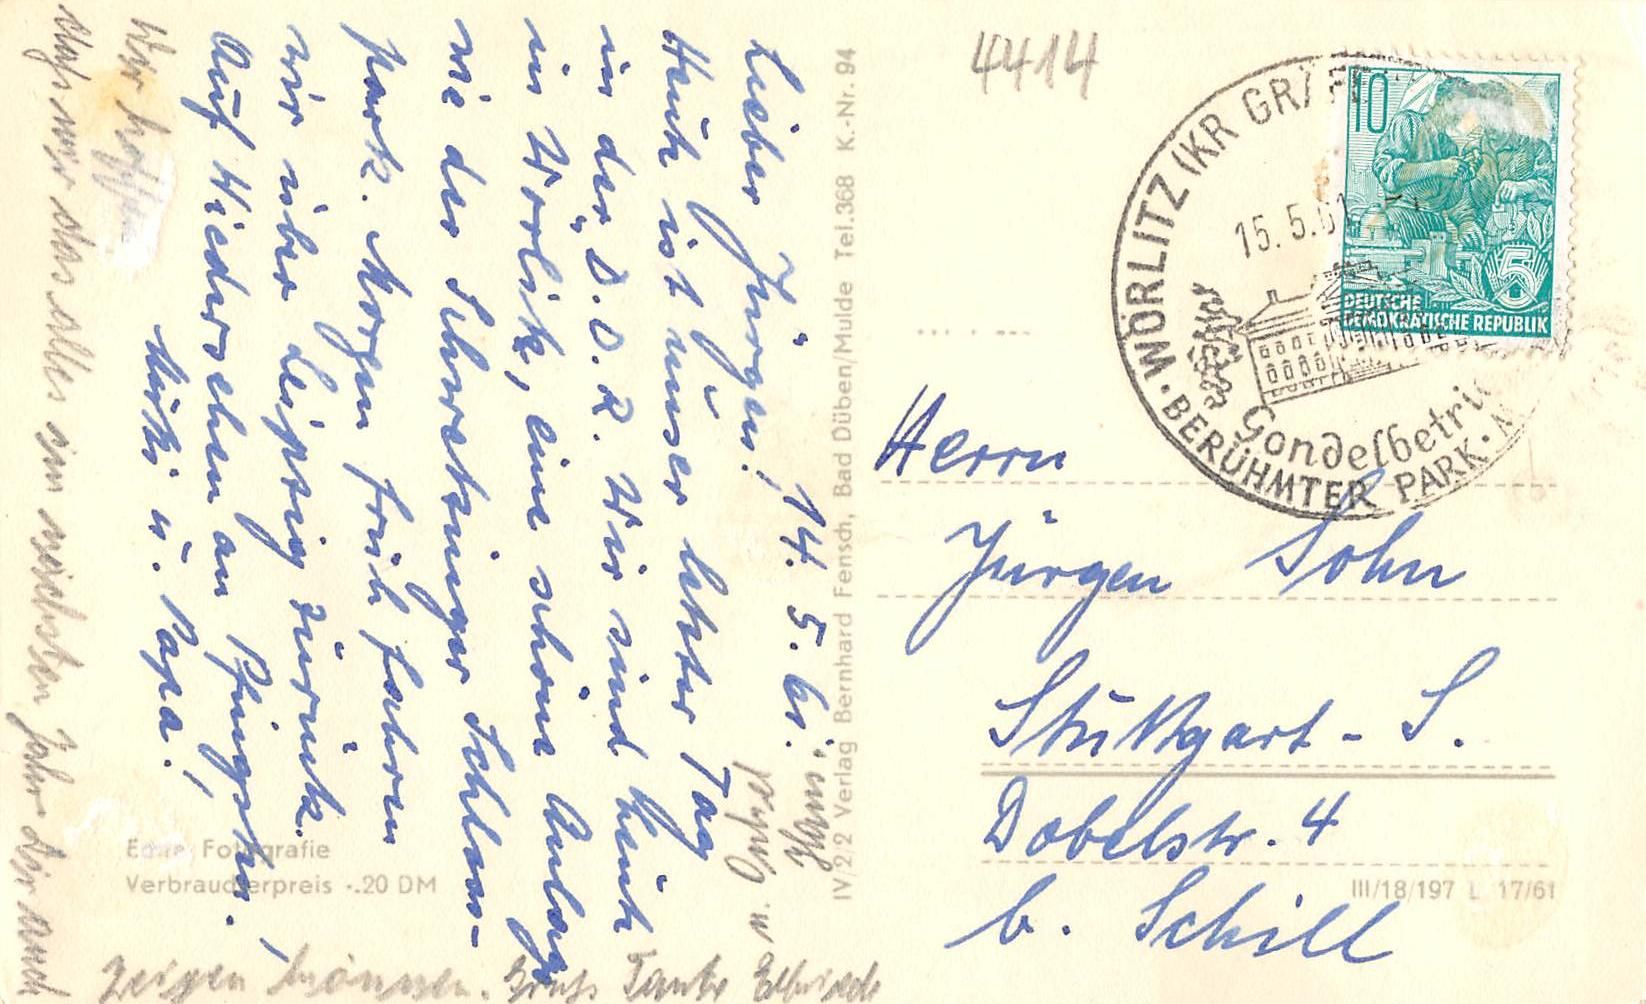 Lieber Jürgen! 14. 5. 61.
Heute ist unser letzter Tag
in der D.D.R. Wir sind heute
in Wörlitz, eine schöne Anlage
wie der Schwetzinger Schloss-
park. Morgen früh fahren
wir über Leipzig zurück.
Auf Wiedersehen an Pfingsten.
Mutti u. Papa!
Wir hoffen
daß wir das alles im nächsten Jahr Dir auch
zeigen können. Gruß Tante Elfriede
u. Onkel Hans.
Echte Fotografie
Verbraucherpreis -.20 DM
IV/2/2 Verlag Bernhard Fensch, Bad Düben/Mulde Tel.368 K.-Nr. 94
4414
· WÖRLITZ (KR GRÄFE
15.5.61
Gondelbetri
BERÜHMTER PARK ·
10
5
DEUTSCHE
DEMOKRATISCHE REPUBLIK
Herrn
Jürgen Sohn
Stuttgart - S.
Dobelstr. 4
b. Schill
III/18/197 L 17/61